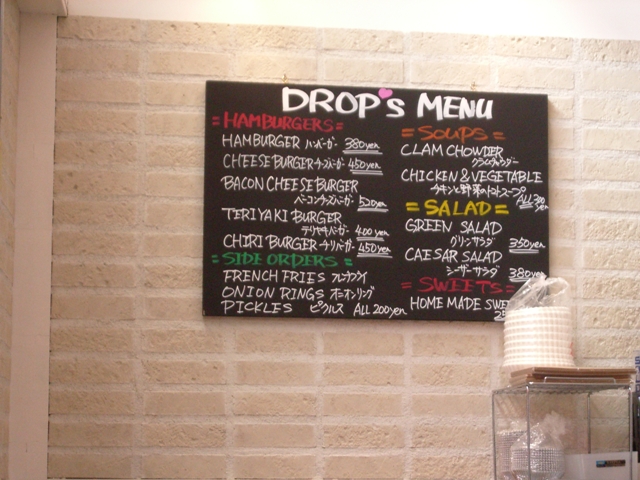 DROP's MENU
=HAMBURGERS=
HAMBURGER ハンバーガー 380yen
CHEESE BURGER チーズバーガー 450yen
BACON CHEESE BURGER
ベーコンチーズバーガー 520yen
TERIYAKI BURGER
テリヤキバーガー 400yen
CHIRI BURGER チリバーガー 450yen
=SIDE ORDERS=
FRENCH FRIES フレンチフライ
ONION RINGS オニオンリング
PICKLES ピクルス ALL 200yen
=SOUPS=
CLAM CHOWDER
クラムチャウダー
CHICKEN & VEGETABLE
チキンと野菜のトマトスープ
ALL 300yen
=SALAD=
GREEN SALAD
グリーンサラダ 350yen
CAESAR SALAD
シーザーサラダ 380yen
=SWEETS=
HOME MADE